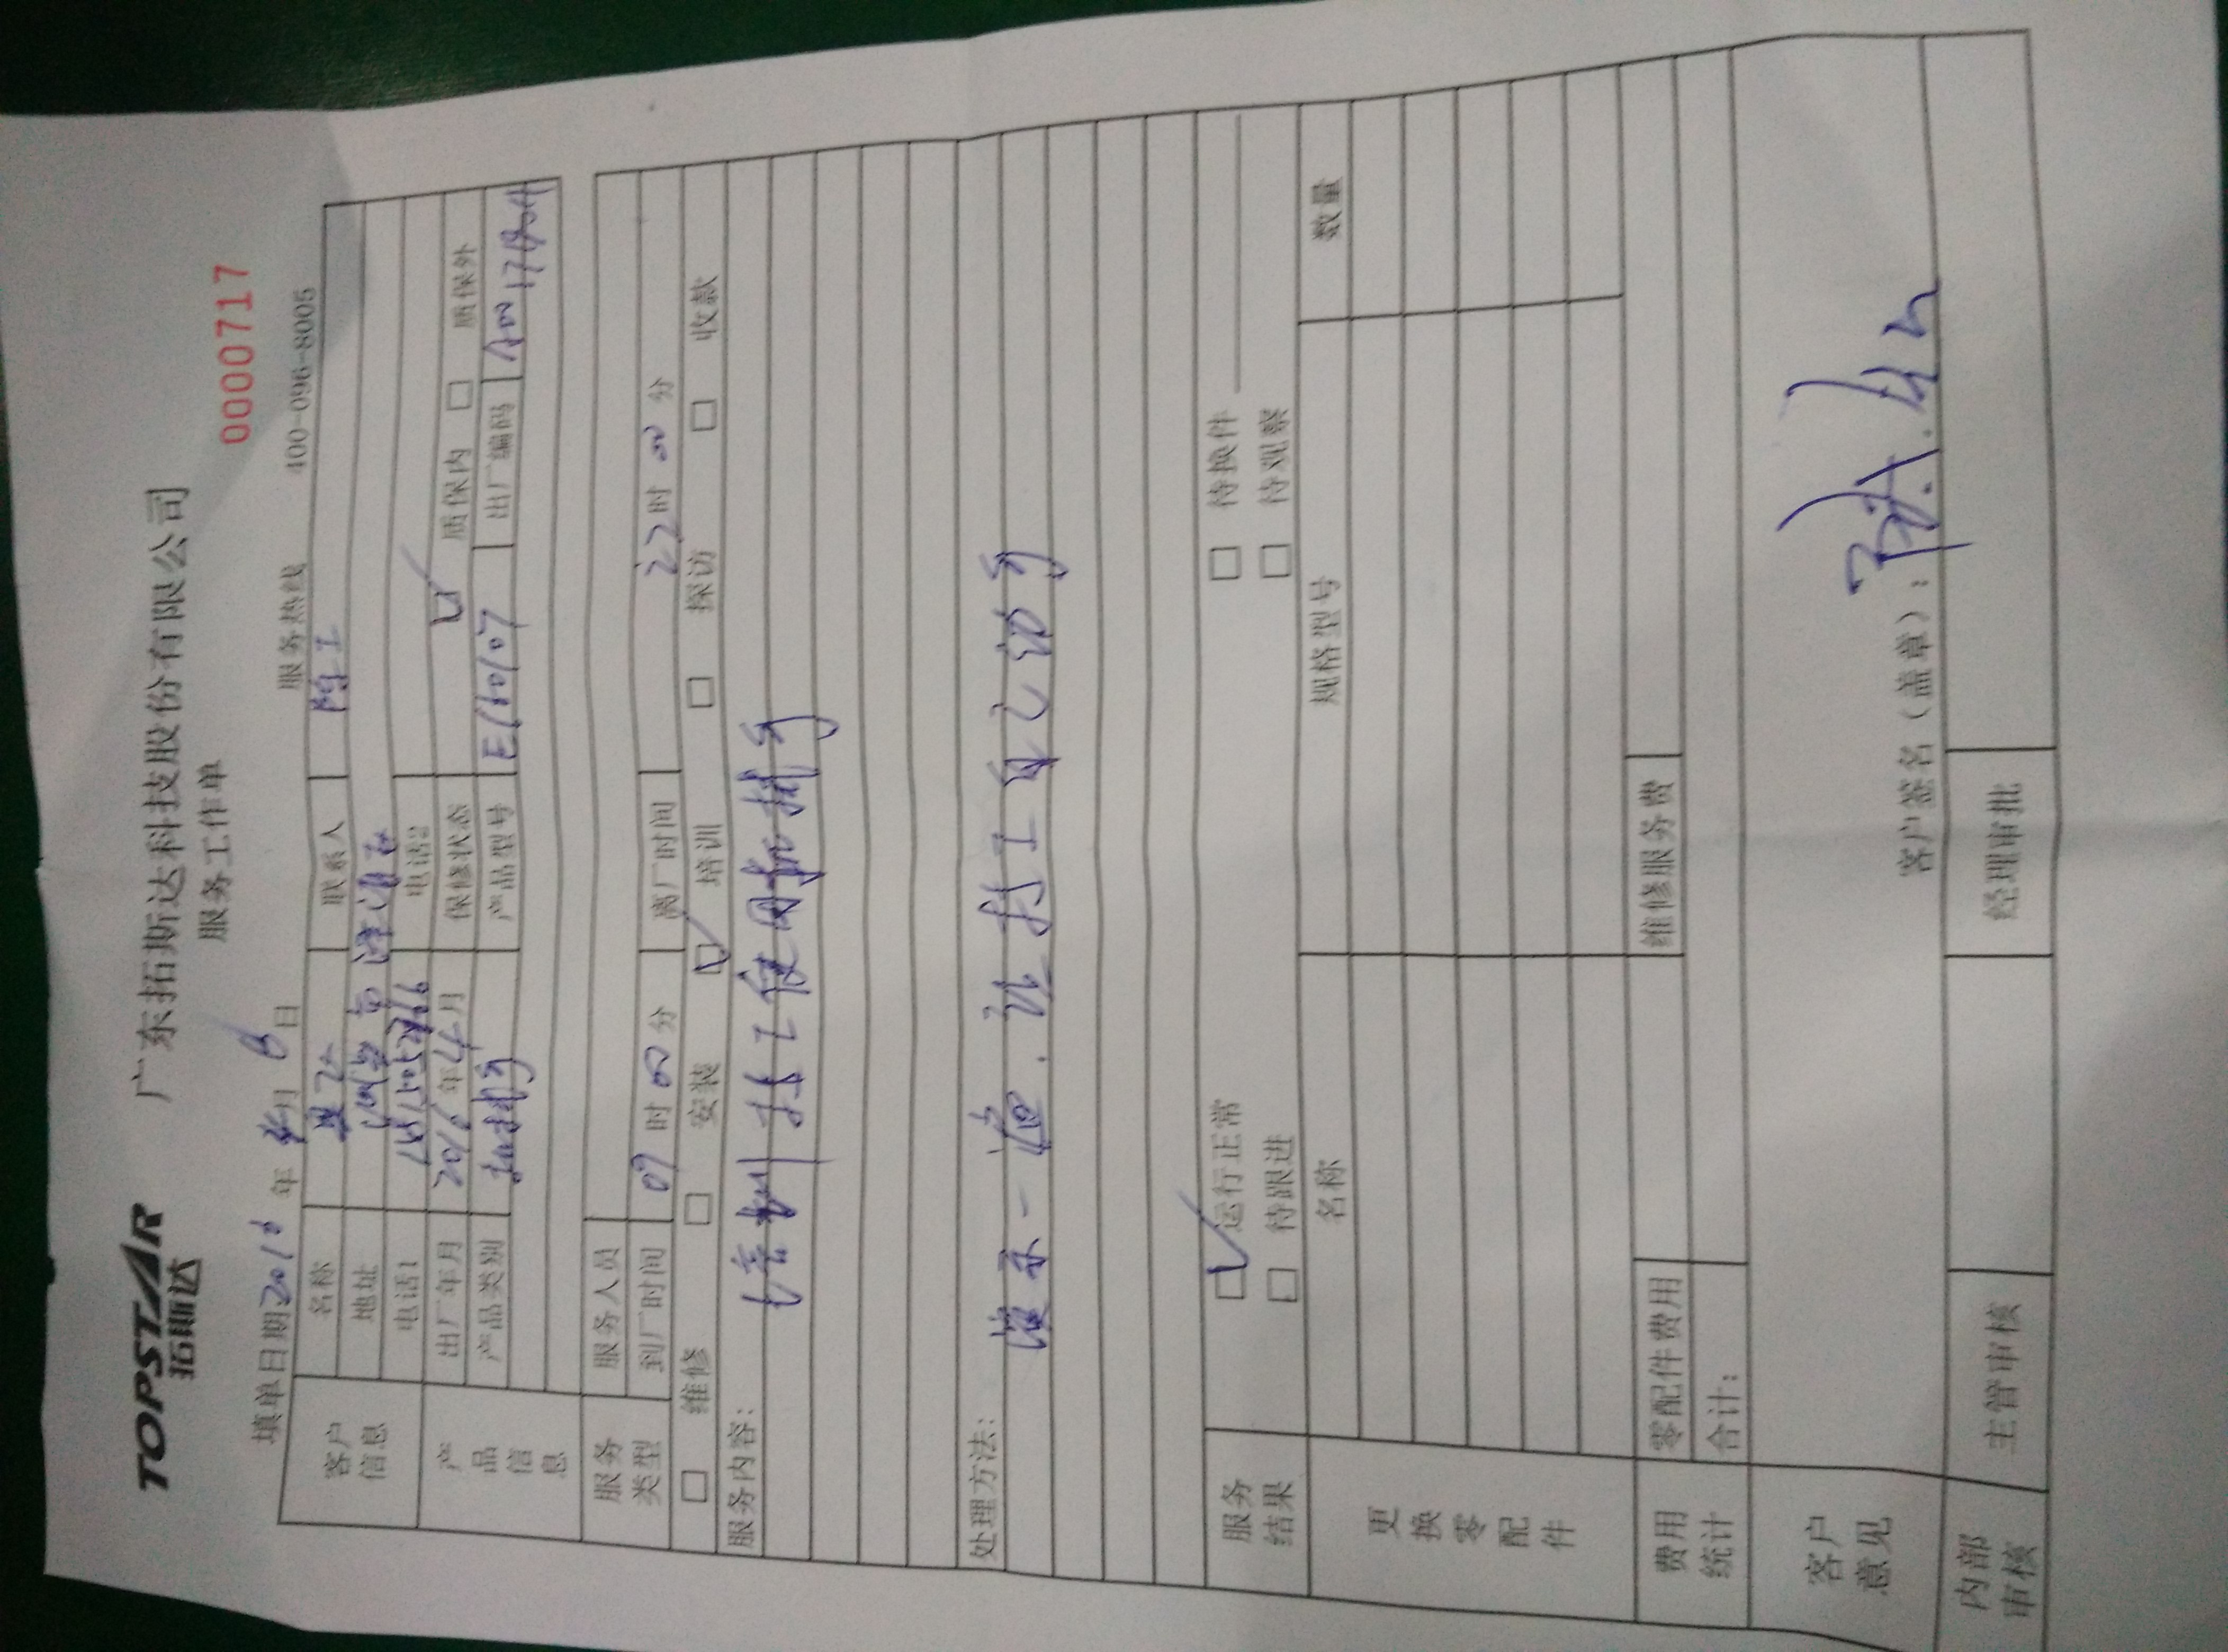 TOPSTAR
拓斯达
广东拓斯达科技股份有限公司
服务工作单
0000717
填单日期 年 月 日 服务热线 400-096-8005
客户信息
名称 联系人 陈工
地址
电话1 电话2
产品信息
出厂年月 2016年4月 保修状态 质保内 质保外
产品类别 机械手 产品型号 出厂编码
服务类型
服务人员
到厂时间 09时00分 离厂时间 22时00分
维修 安装 培训 探访 收款
服务内容:
培训技工使用机械手
处理方法:
演示一遍. 让技工自己动手
服务结果
运行正常 待换件
待跟进 待观察
更换零配件
名称 规格型号 数量
费用统计
零配件费用 维修服务费
合计:
客户意见
客户签名(盖章):
内部审核
主管审核 经理审批